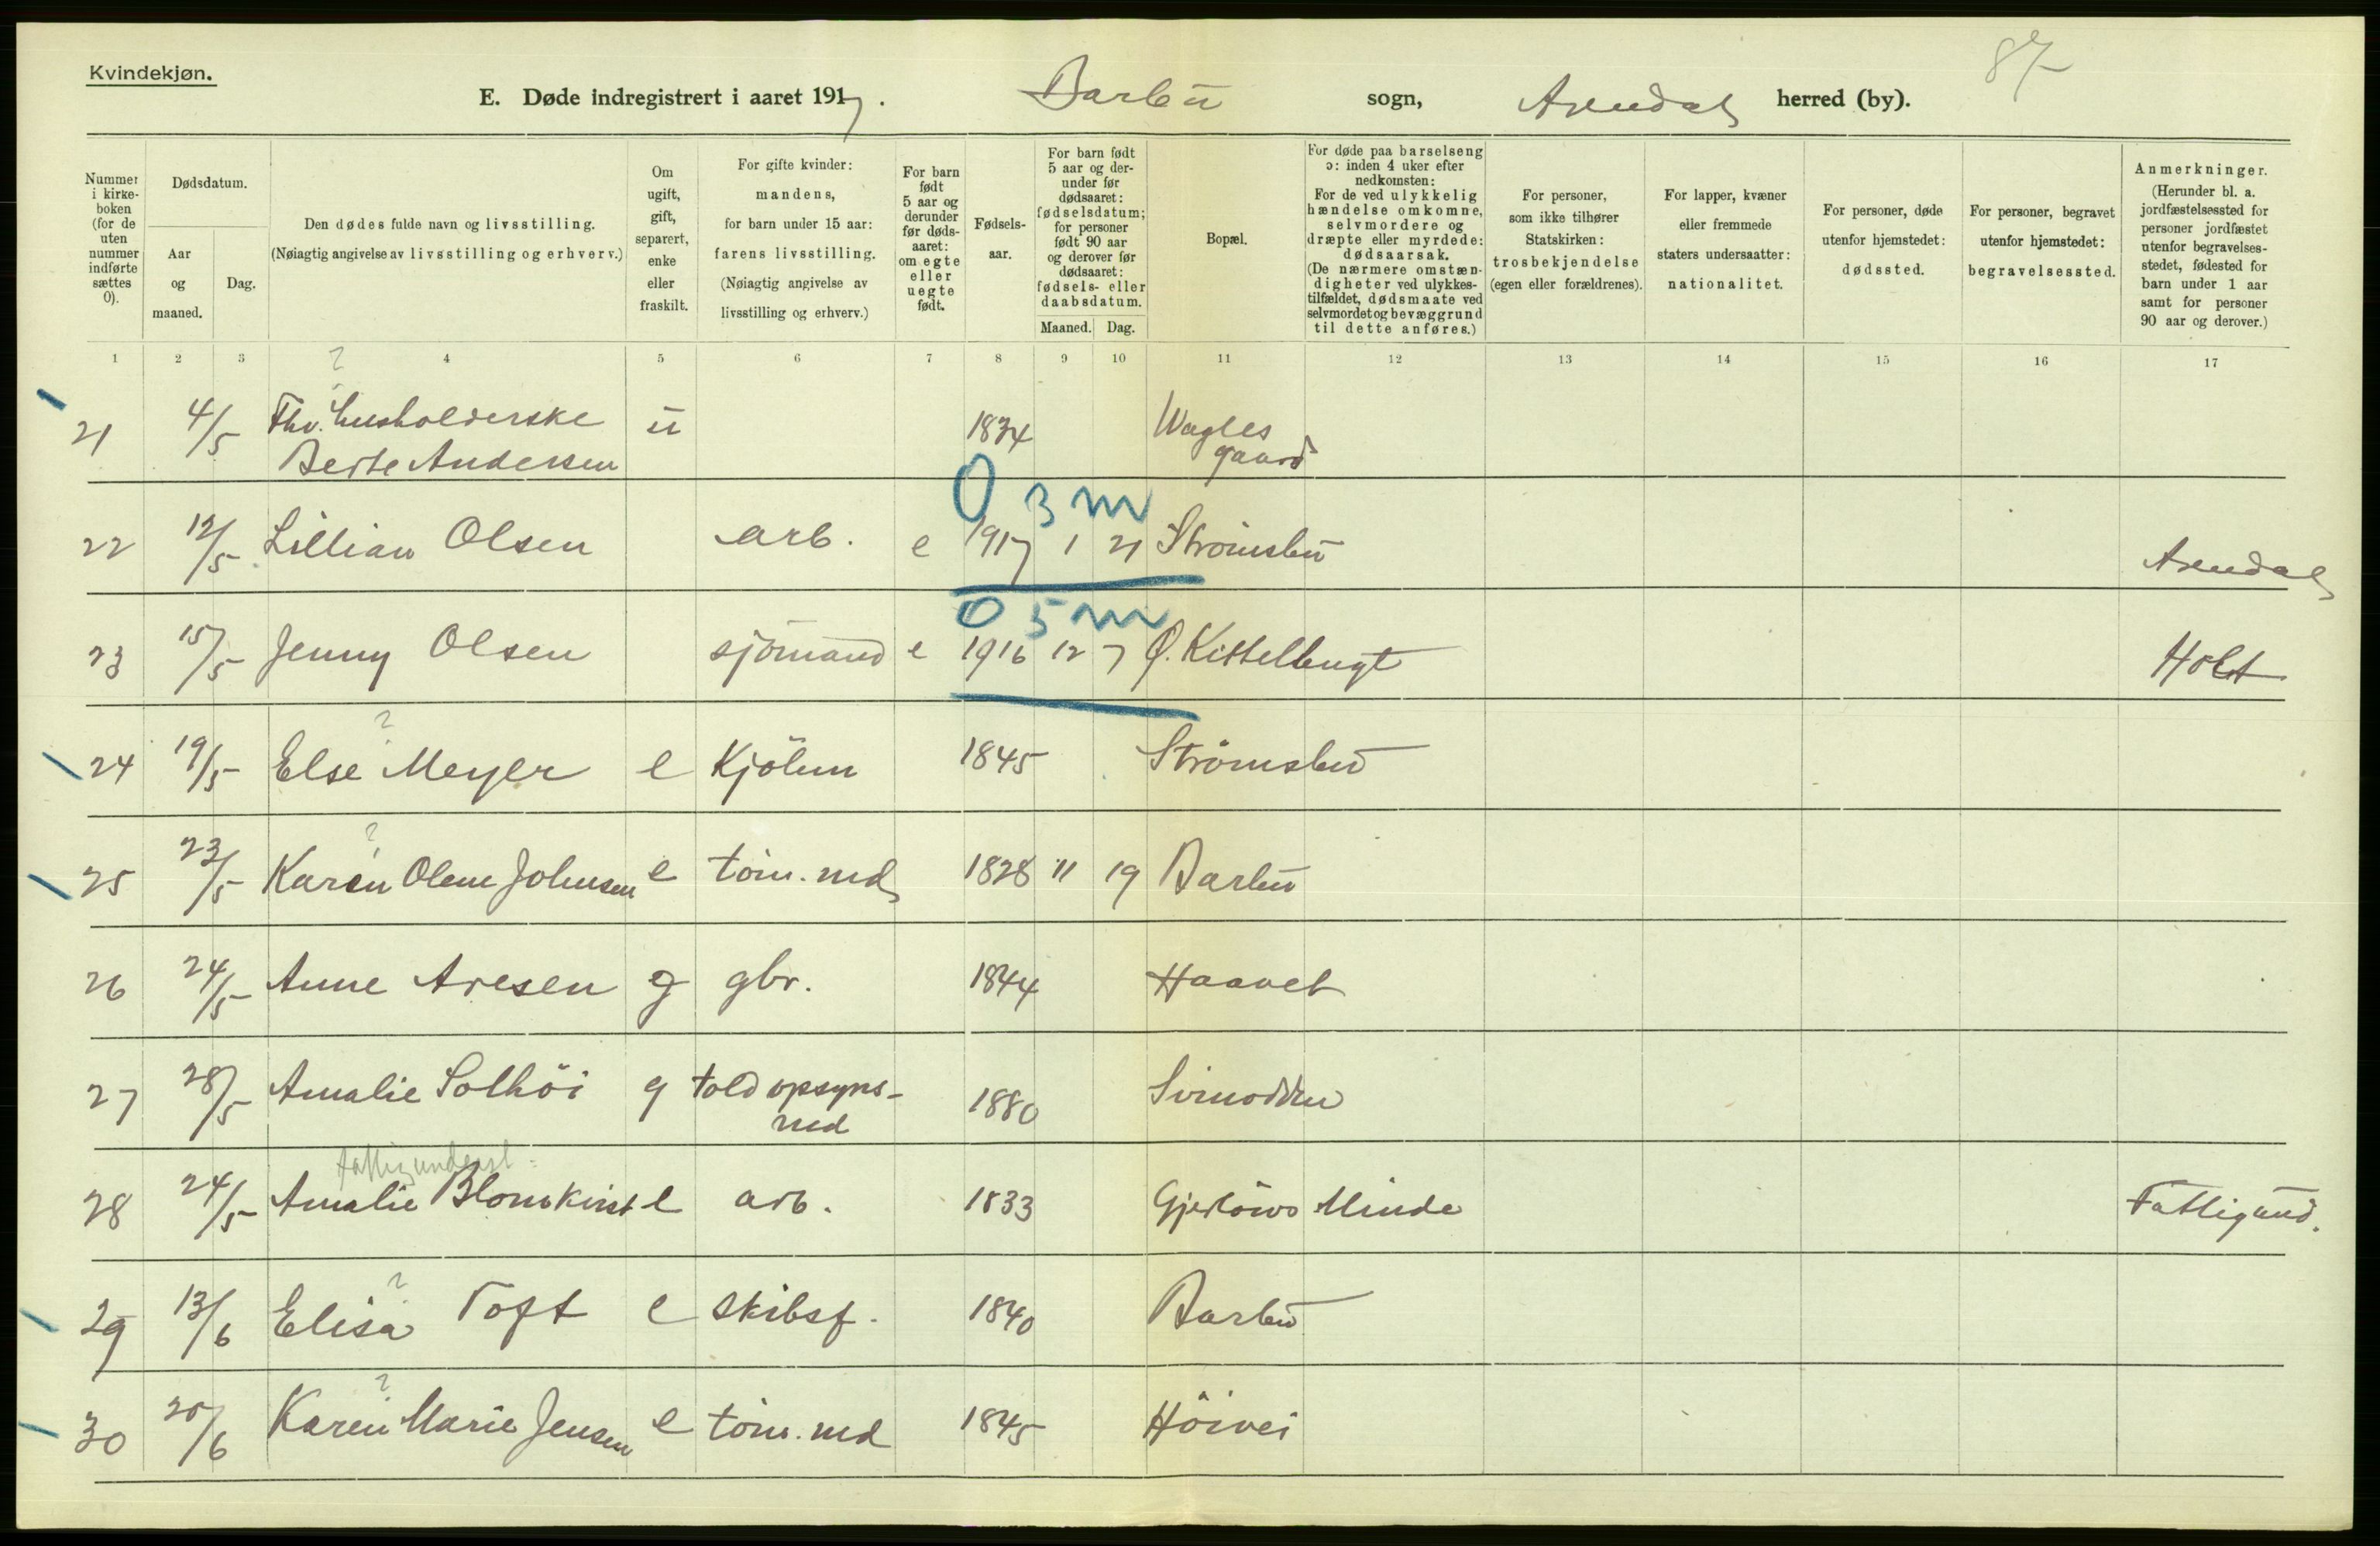 Kvindekjøn.
87
E. Døde indregistrert i aaret 1917. Barbu sogn, Arendal herred (by).
Nummer i kirkeboken (for de uten nummer indførte sættes 0).
Dødsdatum.
Aar og maaned.
Dag.
Den dødes fulde navn og livsstilling.
(Nøiagtig angivelse av livsstilling og erhverv.)
Om ugift, gift, separert, enke eller fraskilt.
For gifte kvinder: mandens, for barn under 15 aar: farens livsstilling. (Nøiagtig angivelse av livsstilling og erhverv.)
For barn født 5 aar og derunder før dødsaaret: om egte eller uegte født.
Fødselsaar.
For barn født 5 aar og derunder før dødsaaret: fødselsdatum; for personer født 90 aar og derover før dødsaaret: fødsels- eller daabsdatum.
Maaned. Dag.
Bopæl.
For døde paa barselseng ɔ: inden 4 uker efter nedkomsten: For de ved ulykkelig hændelse omkomne, selvmordere og dræpte eller myrdede: dødsaarsak. (De nærmere omstændigheter ved ulykkestilfældet, dødsmaate ved selvmordet og bevæggrund til dette anføres.)
For personer, som ikke tilhører Statskirken: trosbekjendelse (egen eller forældrenes).
For lapper, kvæner eller fremmede staters undersaatter: nationalitet.
For personer, døde utenfor hjemstedet: dødssted.
For personer, begravet utenfor hjemstedet: begravelsessted.
Anmerkninger. (Herunder bl. a. jordfæstelsessted for personer jordfæstet utenfor begravelsesstedet, fødested for barn under 1 aar samt for personer 90 aar og derover.)
1 2 3 4 5 6 7 8 9 10 11 12 13 14 15 16 17
?
21 4/5 Fhv. husholderske ü 1834 Wagles
Berte Andersen gaard
0 3 m
22 12/5 Lillian Olsen arb. e 1917 1 21 Strömsbu Arendal
0 5 m
23 15/5 Jenny Olsen sjömand e 1916 12 7 Ø. Kittelbugt Holt
?
24 19/5 Else Meyer e Kjölm 1845 Strömsbu
?
25 23/5 Karen Olene Johnsen e töm. md 1828 11 19 Barbu
26 24/5 Anne Aresen g gbr. 1844 Haavet
27 28/5 Amalie Solhöi g toldopsyns-
md 1880 Svinodden
fattigunderst.
28 24/5 Amalie Blomkvist e arb. 1833 Gjerlöws Minde Fattigund.
?
29 13/6 Elisa Toft e skibsf. 1840 Barbu
?
30 20/6 Karen Marie Jensen e töm. md 1845 Höivei